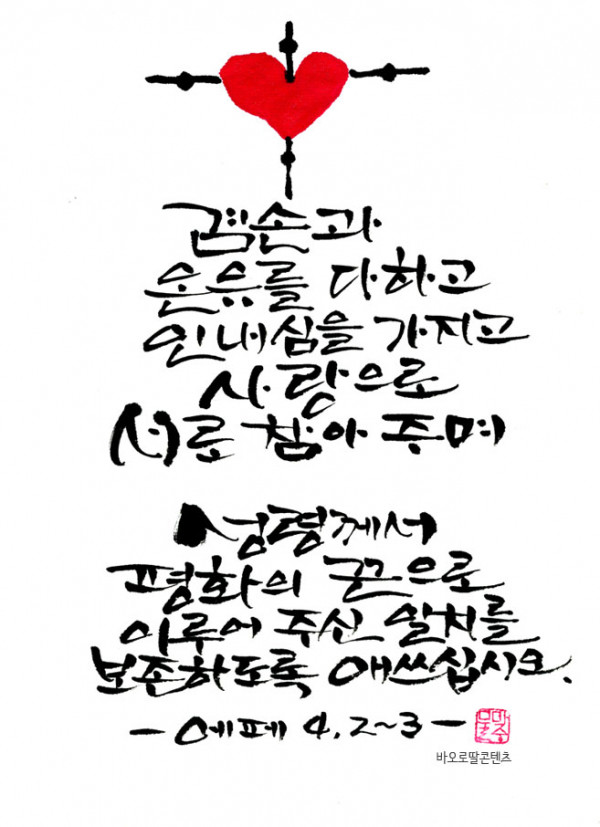 겸손과
온유를 다하고
인내심을 가지고
사랑으로
서로 참아 주며
성령께서
평화의 끈으로
이루어 주신 일치를
보존하도록 애쓰십시오.
- 에페 4, 2~3 -
바오로딸콘텐츠